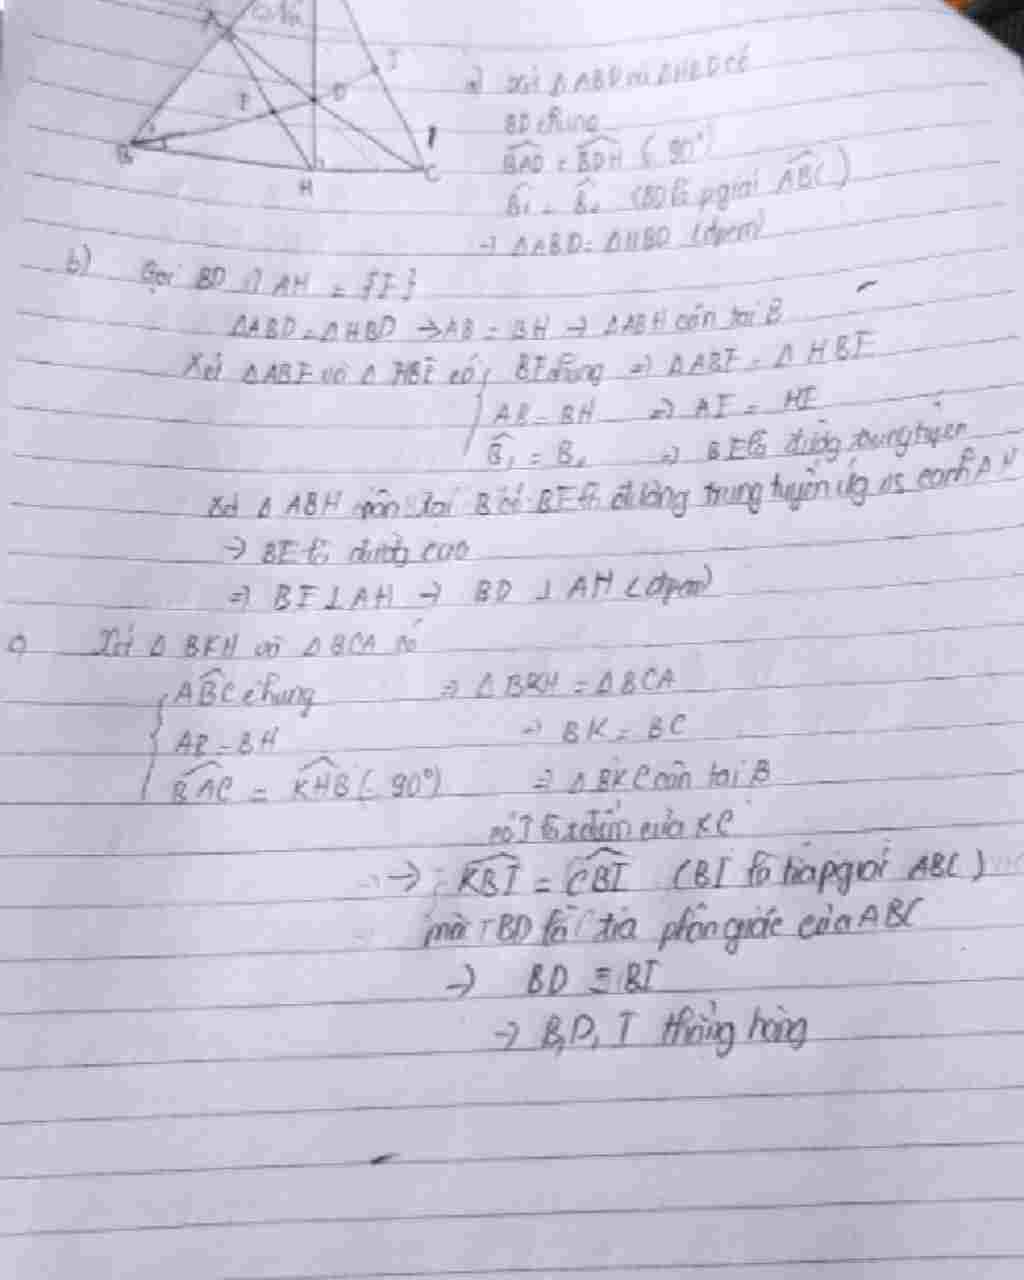 A
I
E
D
B
H
C
a) Xét △ABD và △HBD có
BD chung
BAD = BDH (90°)
B₁ = B₂ (BD là pgiải ABC)
→ △ABD = △HBD (đpcm)
b) Gọi BD ∩ AH = {E}
△ABD = △HBD → AB = BH → △ABH cân tại B
Xét △ABE và △HBE có BE chung ⇒ △ABE = △HBE
AB = BH ⇒ AE = HE
B₁ = B₂ ⇒ BE là đường trung tuyến
Xét △ABH cân tại B có BE là đường trung tuyến ứng vs cạnh AH
→ BE là đường cao
⇒ BE ⊥ AH → BD ⊥ AH (đpcm)
c) Xét △BKH và △BCA có
ABC chung ⇒ △BKH = △BCA
AB = BH → BK = BC
BAC = KHB (90°) ⇒ △BKC cân tại B
có I là tđiểm của KC
→ KBI = CBI (BI là tia pgiải ABC)
mà BD là tia phân giác của ABC
→ BD ≡ BI
→ B, D, I thẳng hàng